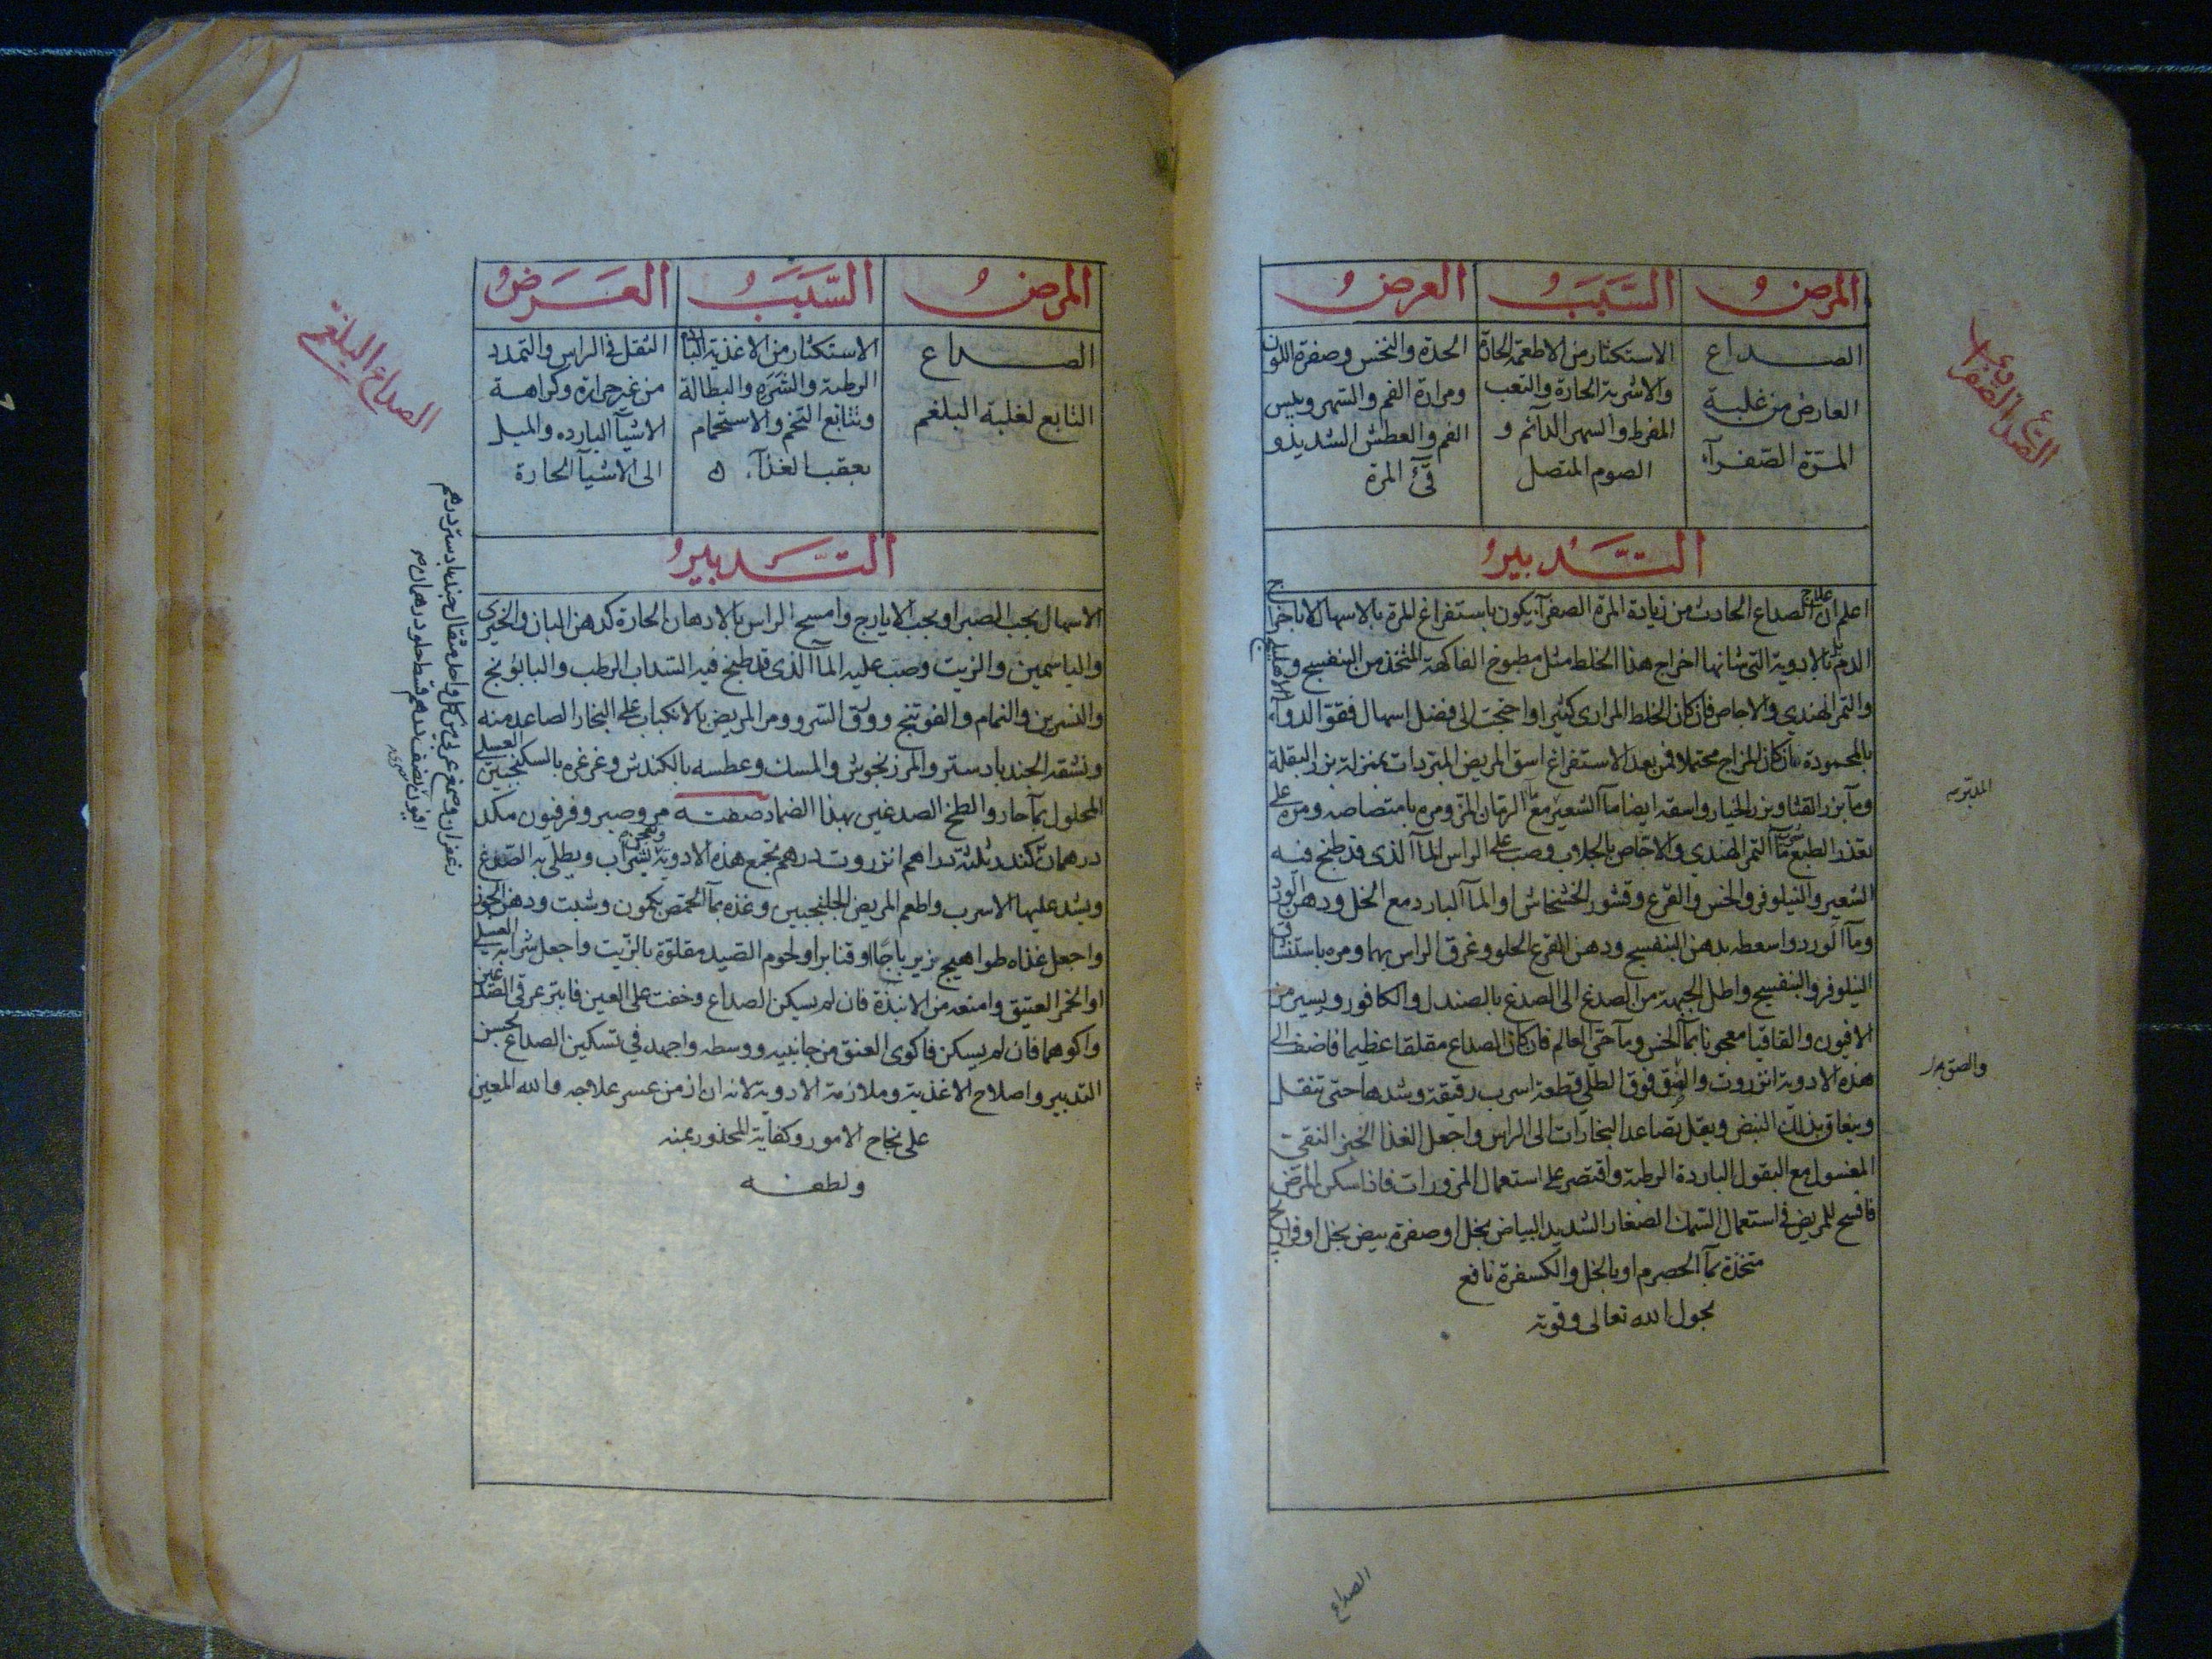 المرض
السبب
العرض
الصداع
العارض من غلبة
المرة الصفرآء
الاستكثار من الاطعمة الحارة
والاشربة الحارة والتعب
المفرط والسهر الدآئم و
الصوم المتصل
الحدة والنخس وصفرة اللون
ومرارة الفم والسهر ويبس
الفم والعطش الشديد و
قئ المرة
التدبير
اعلم ان علاج الصداع الحادث من زيادة المرة الصفرآء يكون باستفراغ المرة بالاسهال لا باخراج
الدم بل بالادوية التى شانها اخراج هذا الخلط مثل مطبوخ الفاكهة المتخذ من البنفسج و
والتمر الهندي والاجاص فان كان الخلط المرارى كثيرا واحتجت الى فضل اسهال فقو الدوآء
بالمحمودة ان كان المزاج محتملا فمن بعد الاستفراغ اسق المريض المبردات بمنزلة بزر البقلة
ومآ بزر القثا وبزر الخيار واسقه ايضا مآ الشعير مع مآ الرمان المز ومره بامتصاصه ومره على
تعذر الطبع بشرب مآ التمر الهندي والاجاص بالجلاب وصب على الراس المآ الذى قد طبخ فيه
الشعير والنيلوفر والخس والقرع وقشور الخشخاش او المآ البارد مع الخل ودهن الورد
ومآ الورد واسعطه بدهن البنفسج ودهن القرع الحلو وغرق الراس بهما ومره باستنشاق
النيلوفر والبنفسج واطل الجبهة من الصدغ الى الصدغ بالصندل والكافور ويسير من
الافيون والقاقيا معجونا بمآ الخس ومآ حى العالم فان كان الصداع مقلقا عظيما فاضف الى
هذه الادوية انزروت والصق فوق الطلى قطعة اسرب رقيقة وشدها حتى تثقل
ويعاق بذلك النبض ويقل تصاعد البخارات الى الراس واجعل الغذا الخبز النقى
المغسول مع البقول الباردة الرطبة واقتصر على استعمال المزورات فاذا سكن المرض
فافسح للمريض فى استعمال السمك الصغار الشديد البياض بخل او صفرة بيض بخل او فراريج
متخذة بمآ الحصرم او بالخل والكسفرة نافع
بحول الله تعالى وقوته
الصداع
المرض
السبب
العرض
الصداع
التابع لغلبة البلغم
الاستكثار من الاغذية الباردة
الرطبة والشره والبطالة
وتتابع التخم والاستحمام
بعقب الغذآء
الثقل فى الراس والتمدد
من غير حرارة وكراهية
الاشيآ البارده والميل
الى الاشيآ الحارة
الصداع البلغمى
التدبير
الاسهال بحب الصبر او بحب الايارج وامسح الراس بالادهان الحارة كدهن البان والخيرى
والياسمين والزيت وصب عليه المآ الذى قد طبخ فيه السداب الرطب والبابونج
والنسرين والنمام والفوتنج وورق السرو ومر المريض بالانكباب على البخار الصاعد منه
ونشقه الجندبادستر والمرزنجوش والمسك وعطسه بالكندش وغرغره بالسكنجبين العسلى
المحلول بمآ حار والطخ الصدغين بهذا الضماد صفته مر وصبر وفرفيون مكد
درهمان كندر ثلثة دراهم انزروت درهم تجمع هذه الادوية بشراب ويطلى به الصدغ
ويشد عليها الاسرب واطعم المريض الجلنجبين وغذه بمآ الحمص بكمون وشبت ودهن الجوز
واجعل غذاه طواهيج بزيرباجا او قنابر او لحوم الصيد مقلوة بالزيت واجعل شرابه العسل
او الخمر العتيق وامنعه من الانبذة فان لم يسكن الصداع وخفت على العين فابتر عرقى الصدغين
واكوهما فان لم يسكن فاكوى العنق من جانبيه ووسطه واجهد فى تسكين الصداع بحسن
التدبير واصلاح الاغذية وملازمة الادوية لانه ان ازمن عسر علاجه والله المعين
على نجاح الامور وكفاية المحذور بمنه
ولطفه
زعفران وصمغ عربى من كل واحد مثقال جندبادستر درهم
افيون نصف درهم قسط حلو درهمان